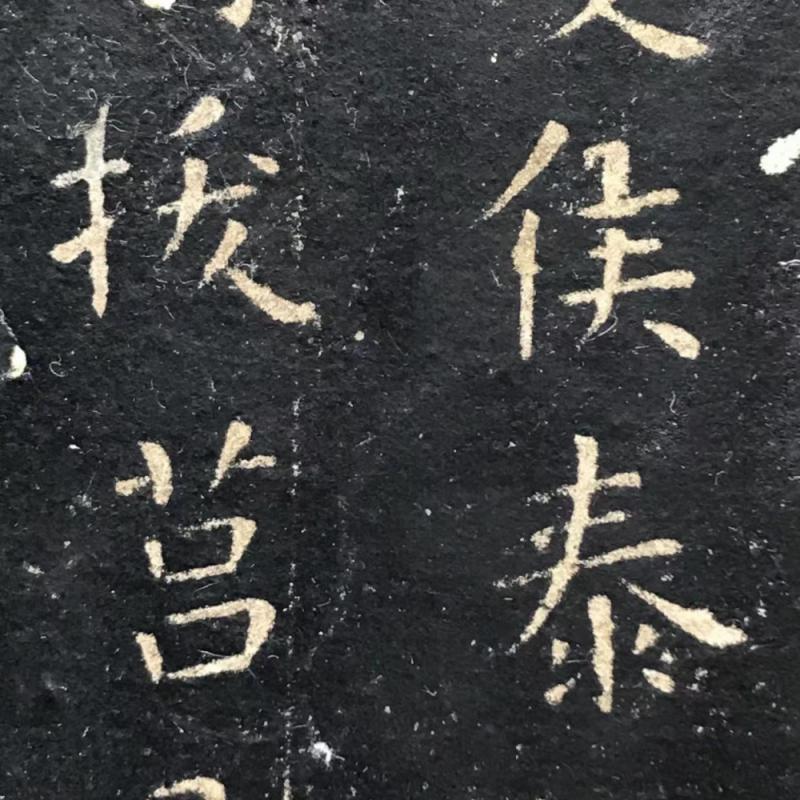 侯泰
拔莒